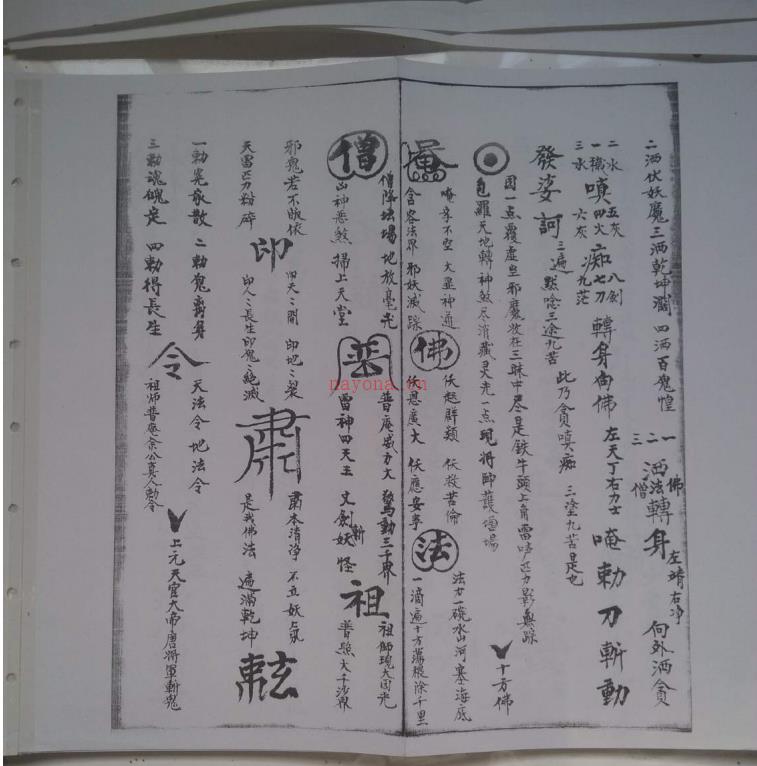 二洒伏妖魔 三洒乾坤 四洒百鬼惶
一二三
洒佛法僧
轉身
左靖右净
向外洒貪
二水 五灰 八劍
一 嗔 四火 痴 七刀
三水 六灰 九茫
轉身向佛
左天丁右力士
唵勅刀斬動
發娑訶
三遍
默唸三途九苦
此乃貪嗔痴 三塗九苦是也
因一点 虛皇 邪魔收在三昧中 尽是鉄牛頭上角 雷 匹力影無踪
包羅天地轉神煞尽消藏 灵光一点現 將師護壇場
十方佛
唵 不空 大显神通
含容法界 邪妖滅踪
佛
伏起群 伏救苦倫
伏恩廣大 伏應安寧
法
法力一碗水 山河塞海底
一滴遍十方 除千里
僧
僧降坛場 地放毫光
凶神恶煞 掃上天堂
普庵威力大 驚動三千界
雷神四天王 文劍斬妖怪
祖
祖師现大圓光
普照大千沙界
邪鬼若不皈依
天雷匹力粉碎
印
印天天開 印地地裂
印人人長生 印鬼鬼絕滅
肅
肅本清净 不立妖氛
是我佛法 遍滿乾坤
一勅冤家散 二勅鬼离身
三勅魂魄定 四勅得長生
令
天法令 地法令
祖师普庵余公真人勅令
上元天官大帝唐將軍斬鬼
nayona.cn